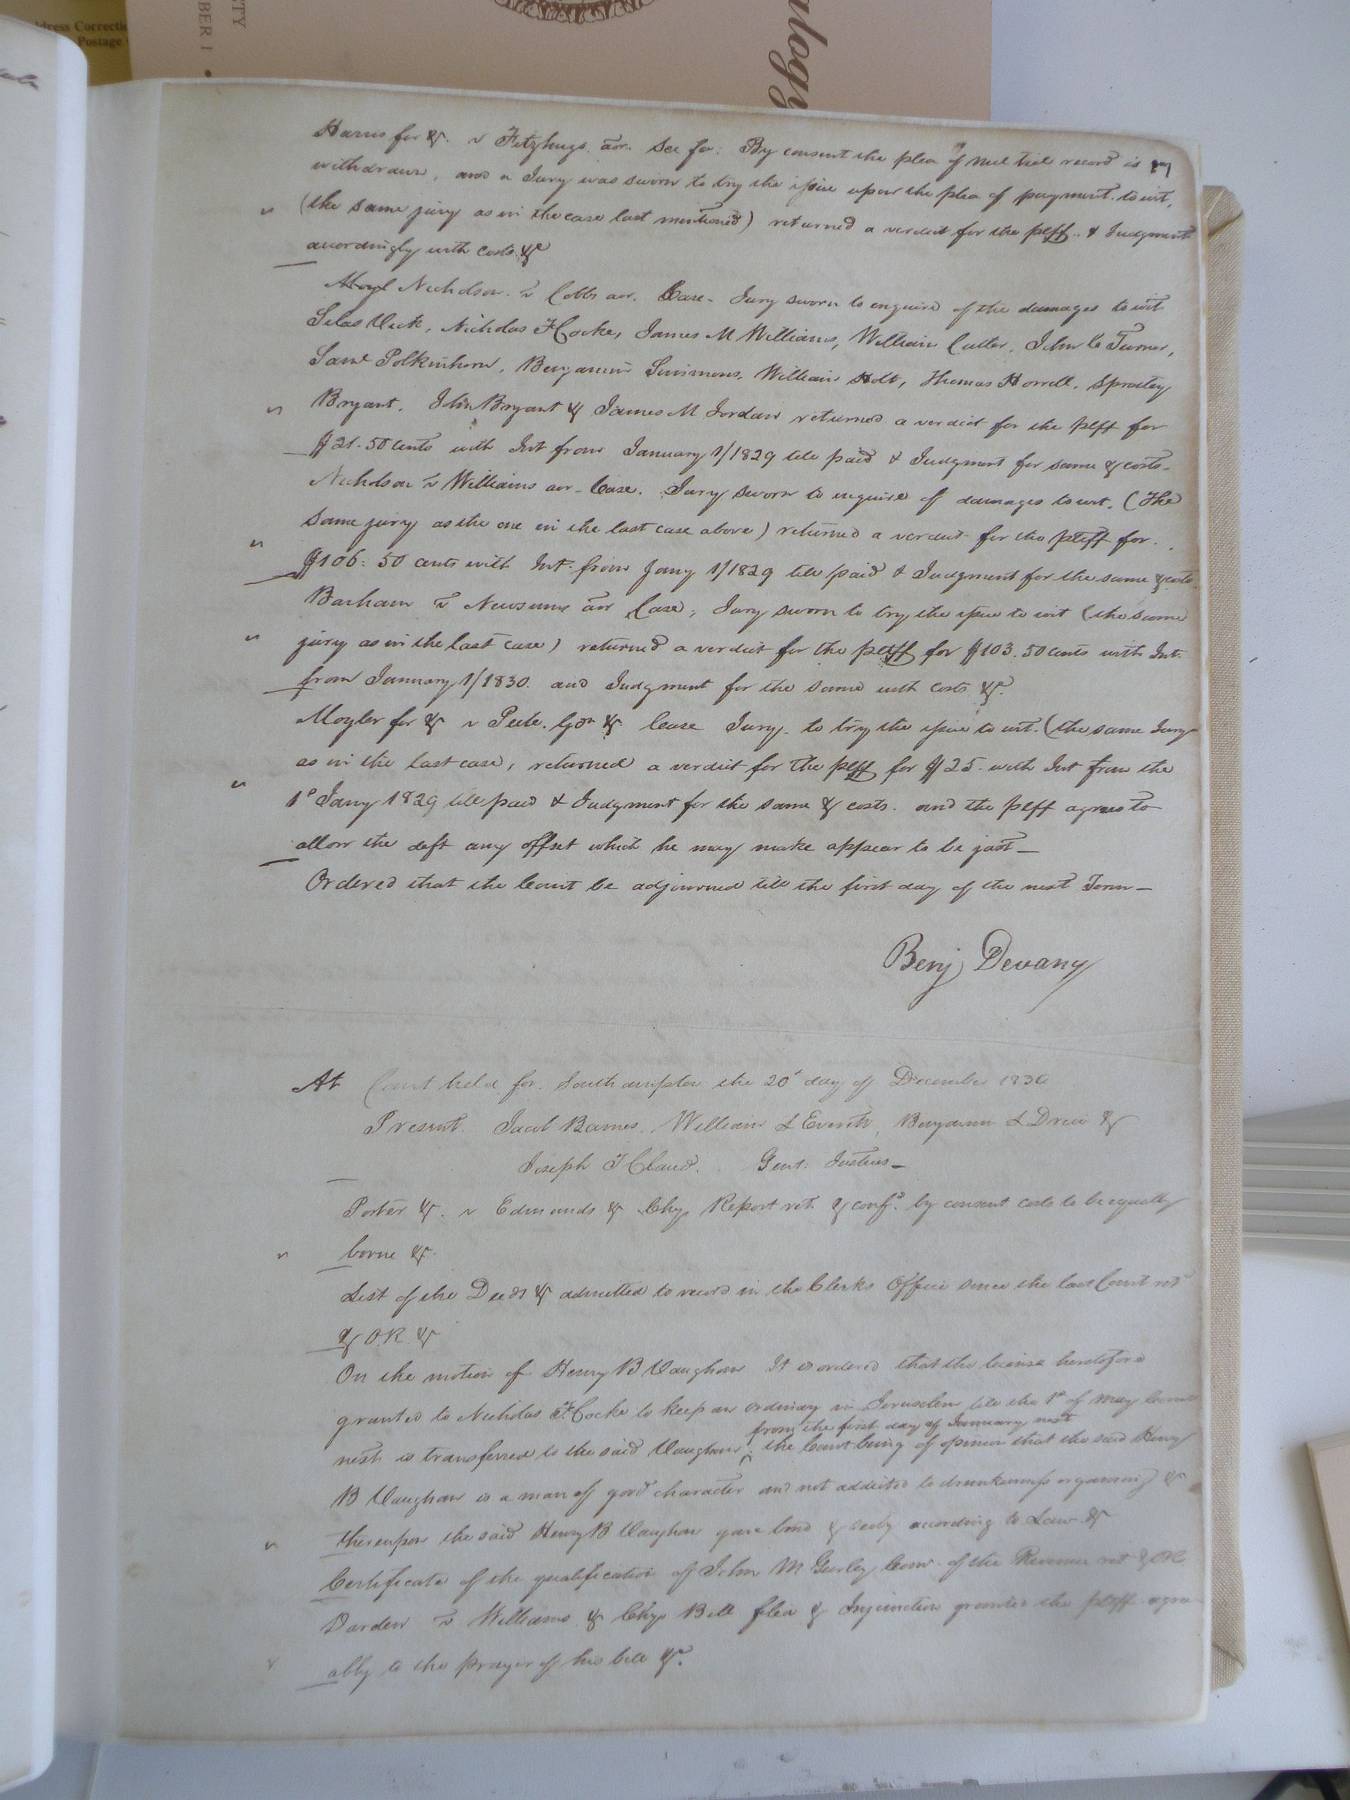 dress Correcti
Postage
TY
BER 1 •
logy
17
Harris for &c. v Fitzhugh aor. Sci fa: By consent the plea of nul tiel record is
withdrawn, and a Jury was sworn to try the issue upon the plea of payment to wit,
(the same jury as in the case last mentioned) returned a verdict for the plff. & Judgment
accordingly with costs &c
Nicholson v Cobbs aor. Case - Jury sworn to enquire of the damages to wit
Silas Vick, Nicholas F Cocke, James M Williams, William Cutler, John C Turner,
Saml Polkinhorn, Benjamin Simmons, William Holt, Thomas Horrell, Spratley
Bryant, John Bryant & James M Jordan returned a verdict for the plff for
$21.50 cents with Int from January 1/1829 till paid & Judgment for same & costs -
Nicholson v Williams aor - Case. Jury sworn to enquire of damages to wit. (The
same jury as the one in the last case above) returned a verdict for the pltff for.
$106.50 cents with Int. from Jany 1/1829 till paid & Judgment for the same & costs
Barham v Newsums aor Case, Jury sworn to try the issue to wit (the same
jury as in the last case) returned a verdict for the pltff for $103.50 cents with Int.
from January 1/1830. and Judgment for the same with costs &c.
Moyler for &c v Peete. Gdn &c Case Jury. to try the issue to wit. (the same Jury
as in the last case, returned a verdict for the plff for $25. with Int from the
1st Jany 1829 till paid & Judgment for the same & costs. and the plff agrees to
allow the deft any offset which he may make appear to be just —
Ordered that the Court be adjourned till the first day of the next Term —
Benj Devany
At Court held for Southampton the 20th day of December 1830
Present. Jacob Barnes, William L Everitt, Benjamin L Drew &
Joseph T Claud. Gent: Justices —
Porter &c. v Edmunds &c Chy Report ret. & confd. by consent costs to be equally
borne &c.
List of the Deeds &c admitted to record in the Clerks Office since the last Court retd
& O.R. &c
On the motion of Henry B Vaughan It is ordered that the license heretofore
granted to Nicholas F. Cocke to keep an ordinary in Jerusalem till the 1st of May Court
from the first day of January next
next is transferred to the said Vaughan, the Court being of opinion that the said Henry
B Vaughan is a man of good character and not addicted to drunkenness or gaming &
thereupon the said Henry B Vaughan gave bond & secty according to Law &c
Certificate of the qualification of John M Gurley Comr. of the Revenue ret & OR
Darden v Williams &c Chy Bill filed & Injunction granted the pltff agree
ably to the prayer of his bill &c.